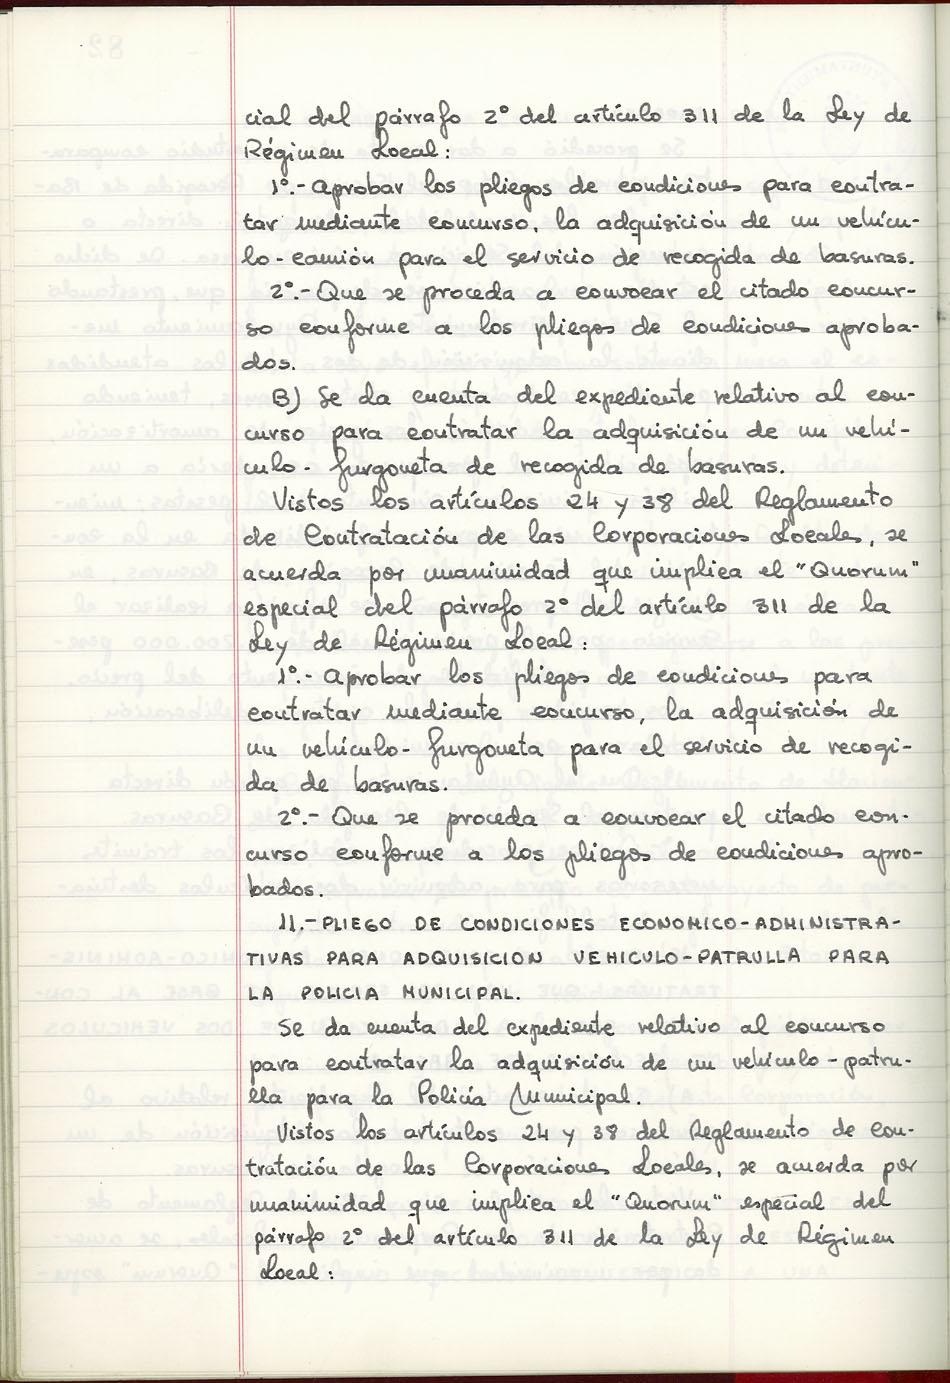 cial del párrafo 2º del artículo 311 de la Ley de
Régimen Local:
1º.- Aprobar los pliegos de condiciones para contra-
tar mediante concurso, la adquisición de un vehícu-
lo-camión para el servicio de recogida de basuras.
2º.- Que se proceda a convocar el citado concur-
so conforme a los pliegos de condiciones aproba-
dos.
B) Se da cuenta del expediente relativo al con-
curso para contratar la adquisición de un vehí-
culo-furgoneta de recogida de basuras.
Vistos los artículos 24 y 38 del Reglamento
de Contratación de las Corporaciones Locales, se
acuerda por unanimidad que implica el "Quorum"
especial del párrafo 2º del artículo 311 de la
Ley de Régimen Local:
1º.- Aprobar los pliegos de condiciones para
contratar mediante concurso, la adquisición de
un vehículo-furgoneta para el servicio de recogi-
da de basuras.
2º.- Que se proceda a convocar el citado con-
curso conforme a los pliegos de condiciones apro-
bados.
11.- PLIEGO DE CONDICIONES ECONOMICO-ADMINISTRA-
TIVAS PARA ADQUISICION VEHICULO-PATRULLA PARA
LA POLICIA MUNICIPAL.
Se da cuenta del expediente relativo al concurso
para contratar la adquisición de un vehículo-patru-
lla para la Policía Municipal.
Vistos los artículos 24 y 38 del Reglamento de con-
tratación de las Corporaciones Locales, se acuerda por
unanimidad que implica el "Quorum" especial del
párrafo 2º del artículo 311 de la Ley de Régimen
Local: